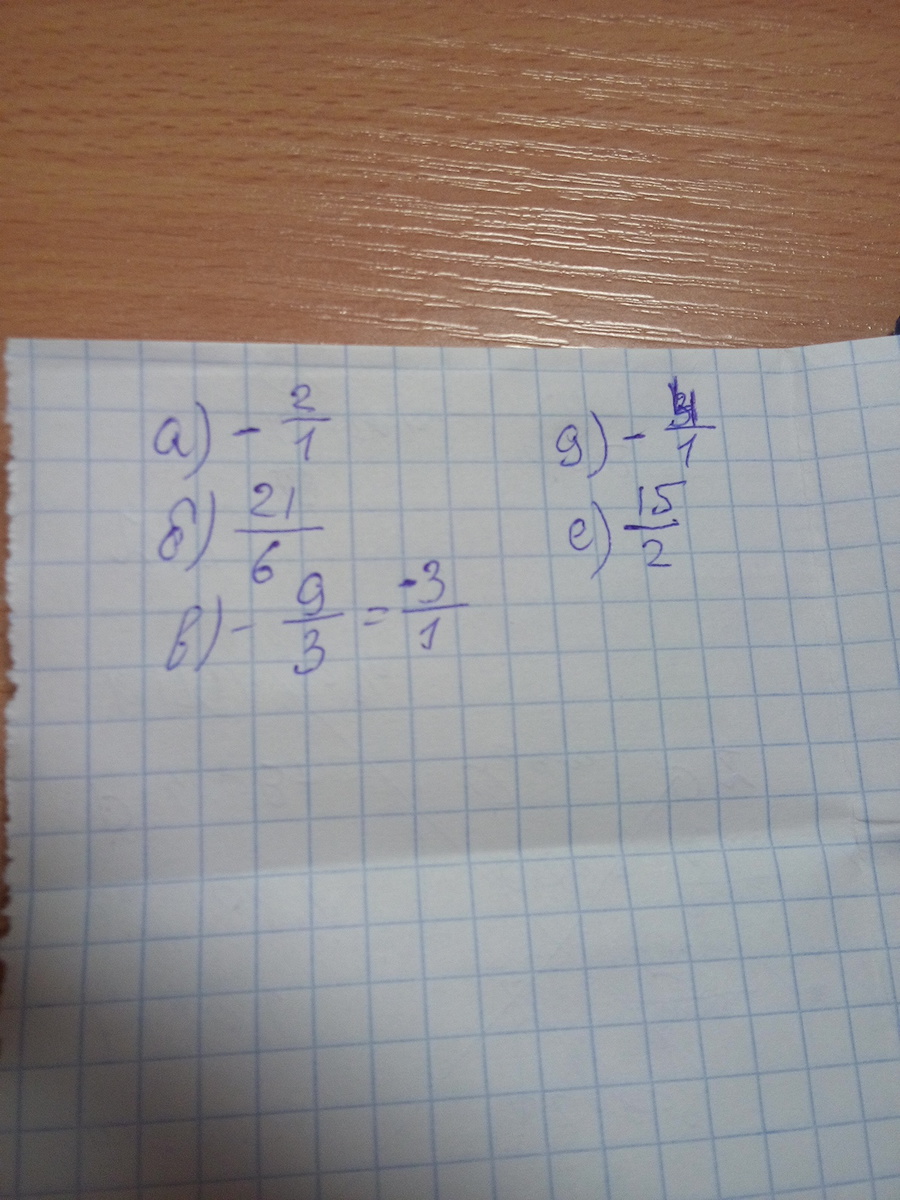 а) - 2/1
б) 21/6
в) - 9/3 = -3/1
д) - 31/1
е) 15/2